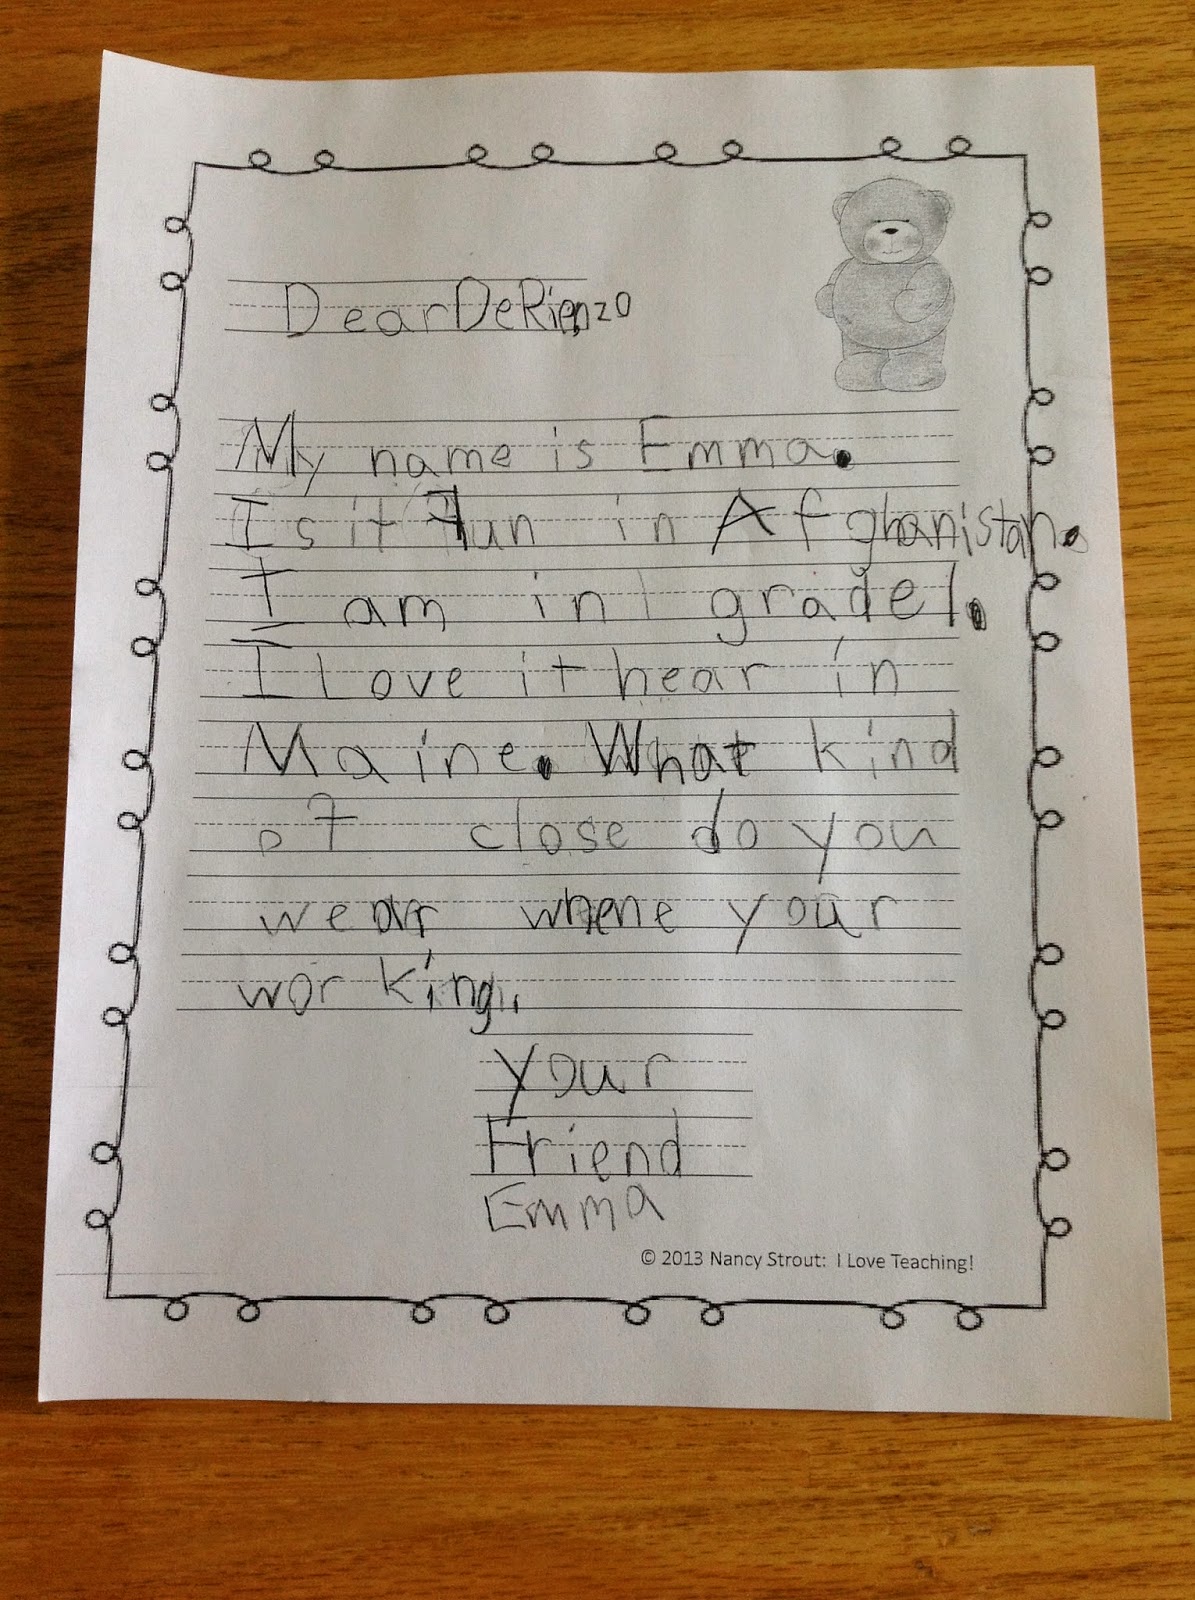 Dear DeRienzo
My name is Emma.
Is it fun in Afghanistan.
I am in grade 1.
I Love it hear in
Maine. What kind
of close do you
wear whene your
working.
your
Friend
Emma
© 2013 Nancy Strout: I Love Teaching!